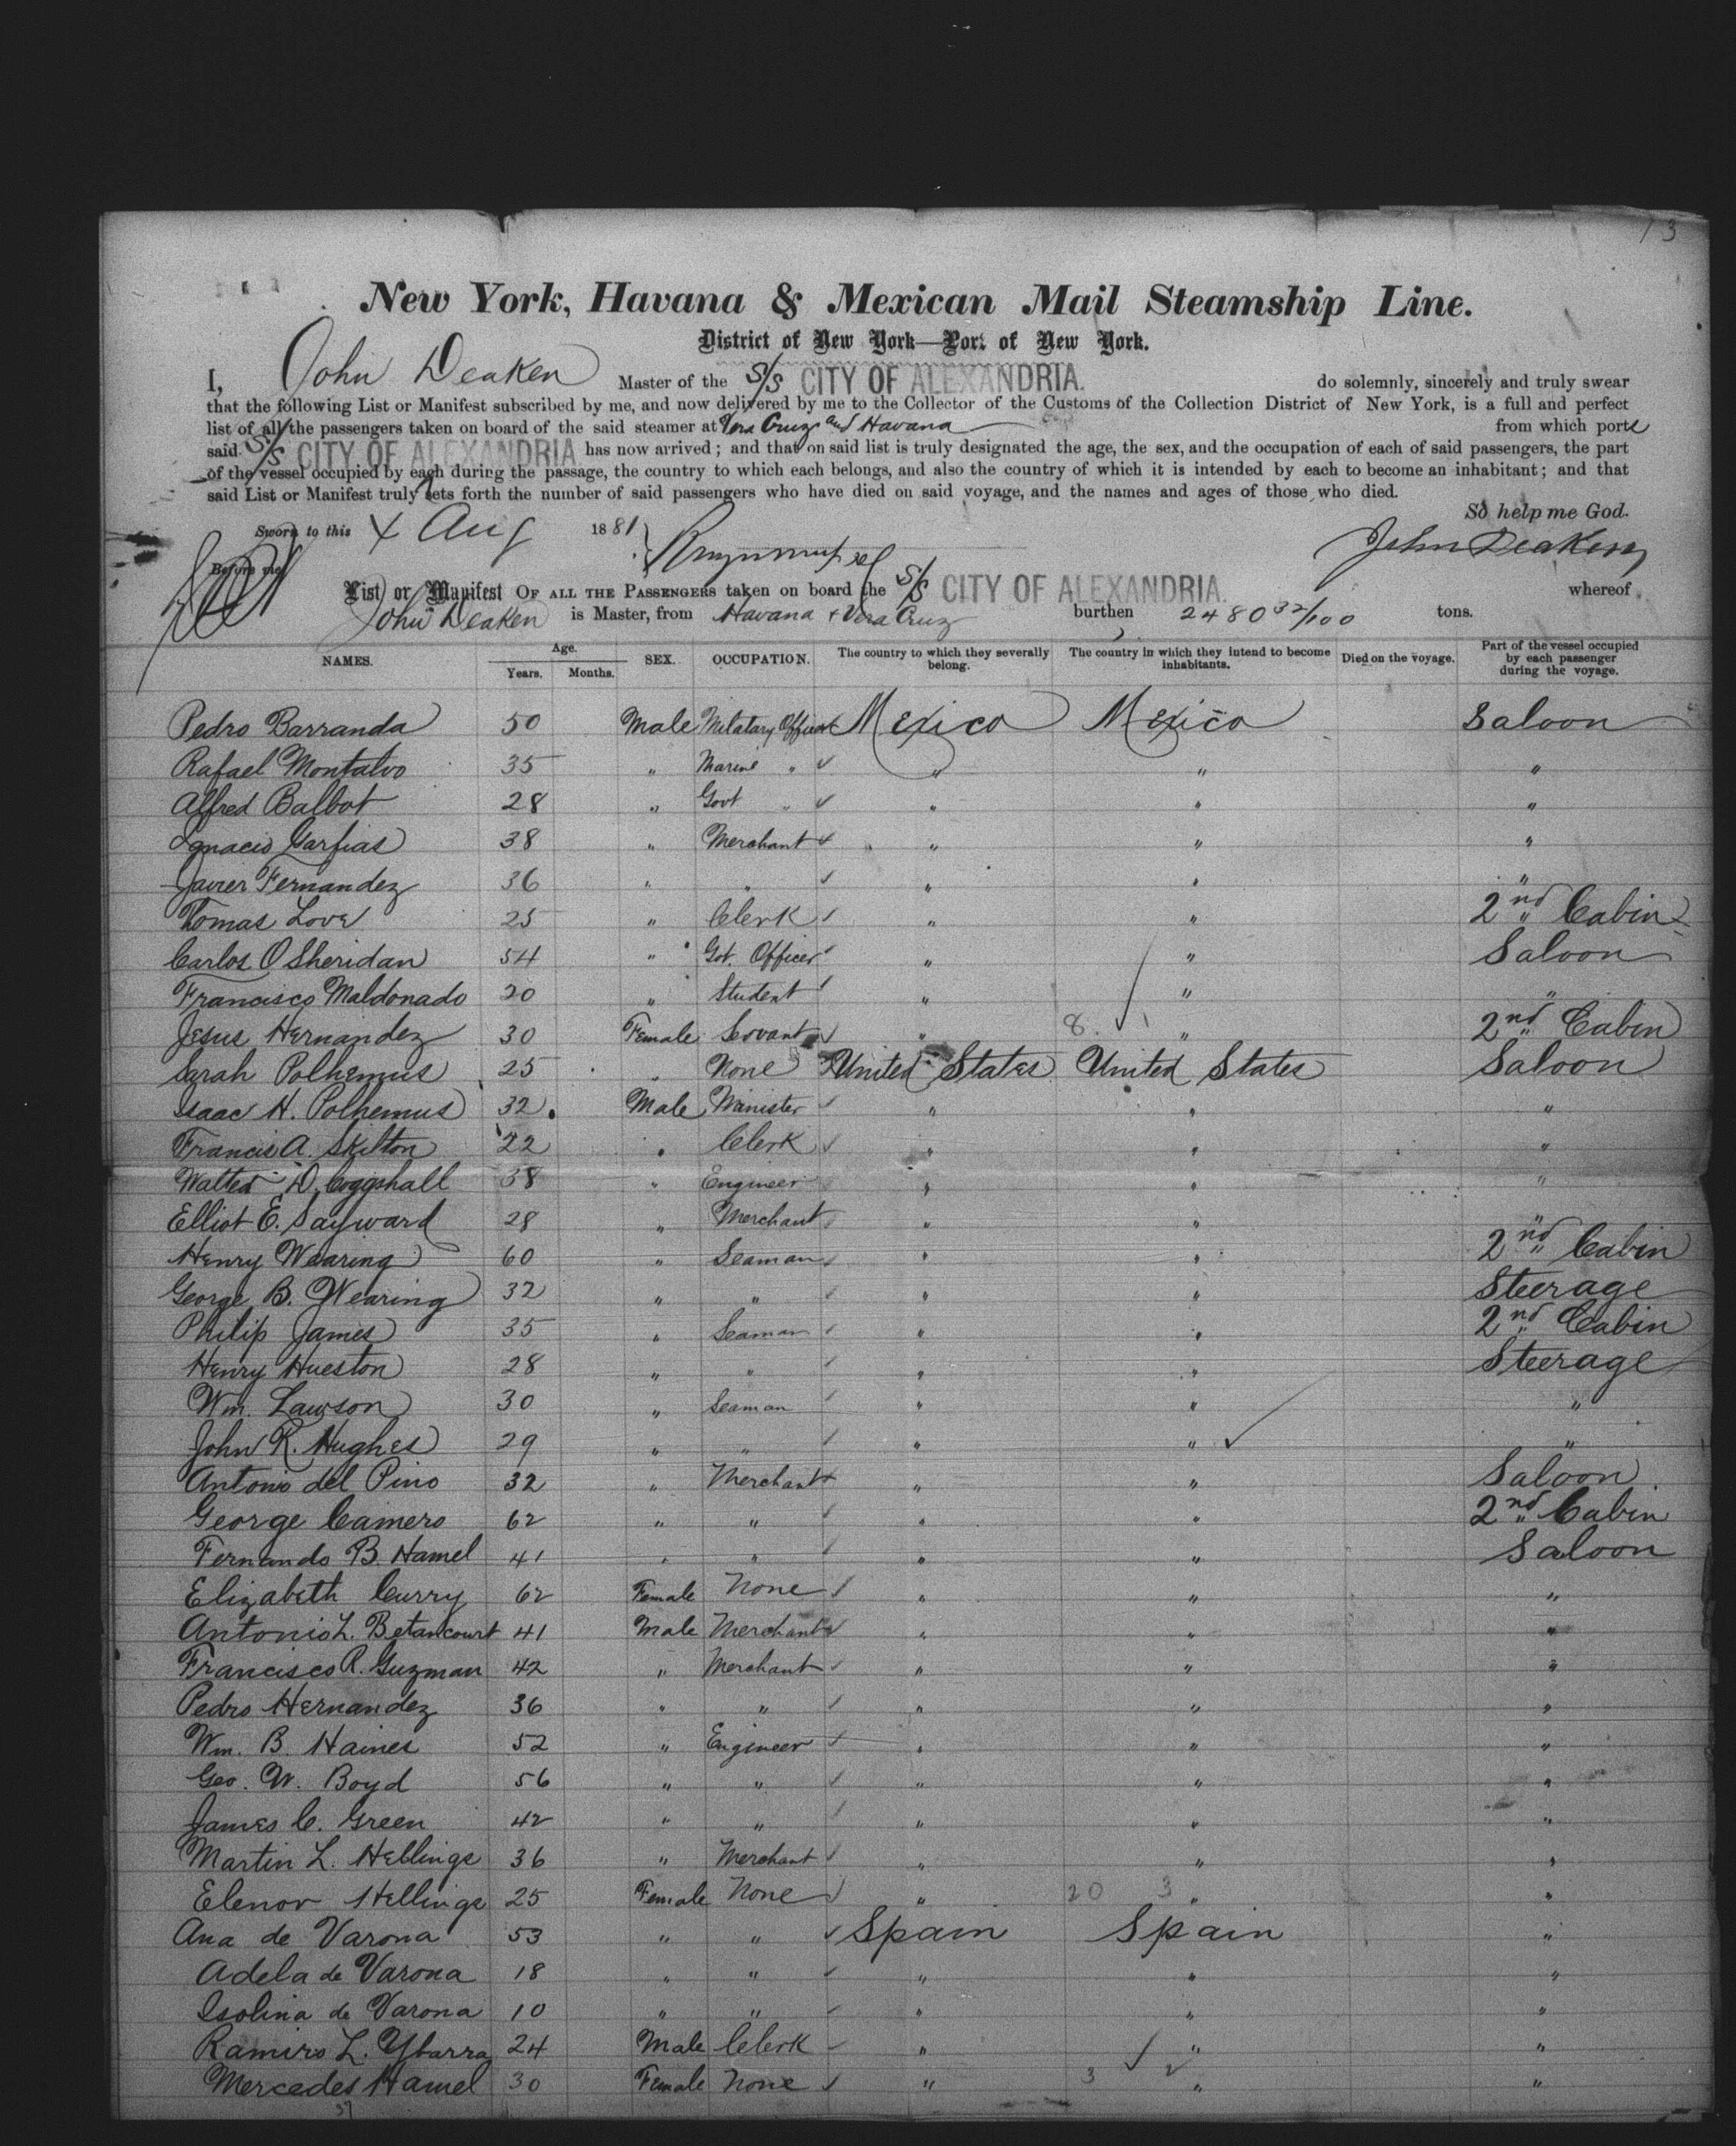 13
New York, Havana & Mexican Mail Steamship Line.
District of New York—Port of New York.
I, John Deaken Master of the S/S CITY OF ALEXANDRIA. do solemnly, sincerely and truly swear
that the following List or Manifest subscribed by me, and now delivered by me to the Collector of the Customs of the Collection District of New York, is a full and perfect
list of all the passengers taken on board of the said steamer at Vera Cruz and Havana from which ports
said S/S CITY OF ALEXANDRIA has now arrived; and that on said list is truly designated the age, the sex, and the occupation of each of said passengers, the part
of the vessel occupied by each during the passage, the country to which each belongs, and also the country of which it is intended by each to become an inhabitant; and that
said List or Manifest truly sets forth the number of said passengers who have died on said voyage, and the names and ages of those who died.
So help me God.
Sworn to this 4 Aug 1881 John Deaken
Before me
List or Manifest OF ALL THE PASSENGERS taken on board the S/S CITY OF ALEXANDRIA. whereof
John Deaken is Master, from Havana + Vera Cruz burthen 2480 32/100 tons.
NAMES. Age. Years. Months. SEX. OCCUPATION. The country to which they severally belong. The country in which they intend to become inhabitants. Died on the voyage. Part of the vessel occupied by each passenger during the voyage.
Pedro Barranda 50 Male Milatary Officer Mexico Mexico Saloon
Rafael Montalvo 35 " Marine " " " "
Alfred Balbot 28 " Govt " " " "
Ignacio Garfias 38 " Merchant " " "
Javier Fernandez 36 " " " " "
Tomas Love 25 " Clerk " " 2nd " Cabin
Carlos O Sheridan 54 " Got. Officer " " Saloon
Francisco Maldonado 20 " Student " " "
Jesus Hernandez 30 Female Servant " 8 " 2nd " Cabin
Sarah Polhemus 25 " None United States United States Saloon
Isaac H. Polhemus 32 Male Minister " " "
Francis A. Skilton 22 " Clerk " " "
Walter D. Coggshall 38 " Engineer " " "
Elliot E. Sayward 28 " Merchant " " "
Henry Wearing 60 " Seaman " " 2nd " Cabin
George B. Wearing 32 " " " " Steerage
Philip James 35 " Seaman " " 2nd " Cabin
Henry Hueston 28 " " " " Steerage
Wm. Lawson 30 " Seaman " " "
John R. Hughes 29 " " " " "
Antonio del Pino 32 " Merchant " " Saloon
George Camero 62 " " " " 2nd " Cabin
Fernando B. Hamel 41 " " " " Saloon
Elizabeth Curry 62 Female None " " "
Antonio L. Betancourt 41 Male Merchant " " "
Francisco R. Guzman 42 " Merchant " " "
Pedro Hernandez 36 " " " " "
Wm. B. Haines 52 " Engineer " " "
Geo. W. Boyd 56 " " " " "
James C. Green 42 " " " " "
Martin L. Hellings 36 " Merchant " " "
Elenor Hellings 25 Female None " 20 3 " "
Ana de Varona 53 " " Spain Spain "
Adela de Varona 18 " " " " "
Isolina de Varona 10 " " " " "
Ramiro L. Ybarra 24 Male Clerk " " "
Mercedes Hamel 30 Female None " 3 " "
37